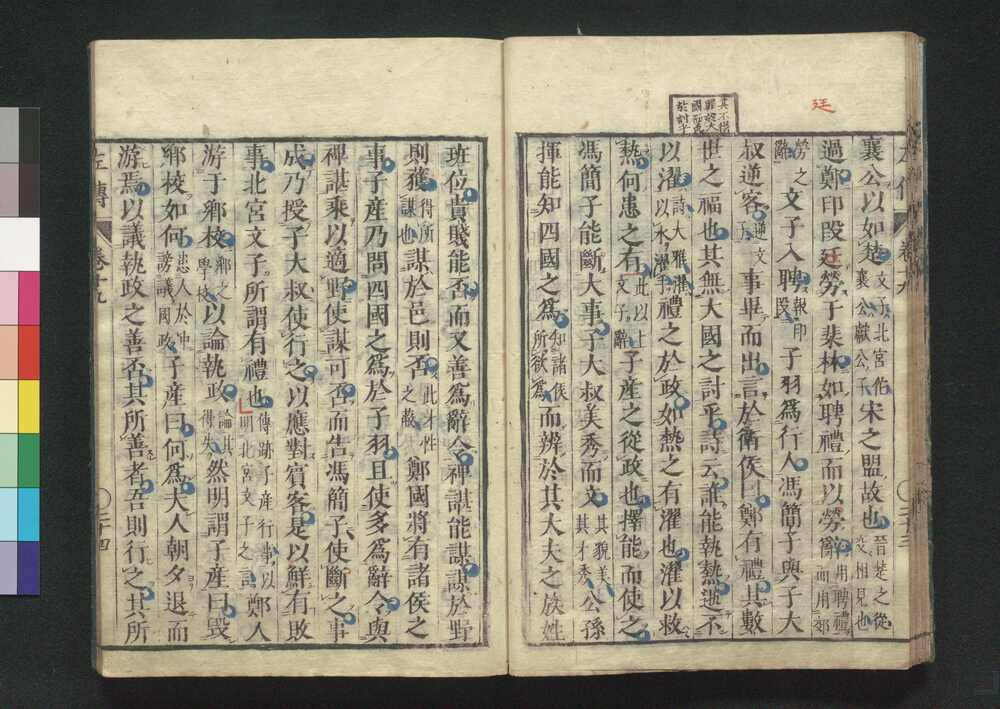 廷
襄公以如楚文子北宮佗襄公獻公子宋之盟故也晉楚之從交相見也
過鄭印段廷勞于棐林如聘禮而以勞辭用聘禮而用郊
勞之辭文子入聘報印段子羽爲行人馮簡子與子大
叔逆客逆文子事畢而出言於衛侯曰鄭有禮其數
世之福也其無大國之討乎詩云誰能執熱逝不
以濯詩大雅濯以水濯手禮之於政如熱之有濯也濯以救
熱何患之有此以上文子辭子產之從政也擇能而使之
馮簡子能斷大事子大叔美秀而文其貌美其才秀公孫
揮能知四國之爲知諸侯所欲爲而辨於其大夫之族姓
班位貴賤能否而又善爲辭令裨諶能謀謀於野
則獲得所謀也謀於邑則否此才性之蔽鄭國將有諸侯之
事子產乃問四國之爲於子羽且使多爲辭令與
裨諶乘以適野使謀可否而告馮簡子使斷之事
成乃授子大叔使行之以應對賓客是以鮮有敗
事北宮文子所謂有禮也傳跡子產行事以明北宮文子之言鄭人
游于鄉校鄉之學校以論執政論其得失然明謂子產曰毀
鄉校如何患人於中謗議國政子產曰何爲夫人朝夕退而
游焉以議執政之善否其所善者吾則行之其所
左傳 卷十九 二十四